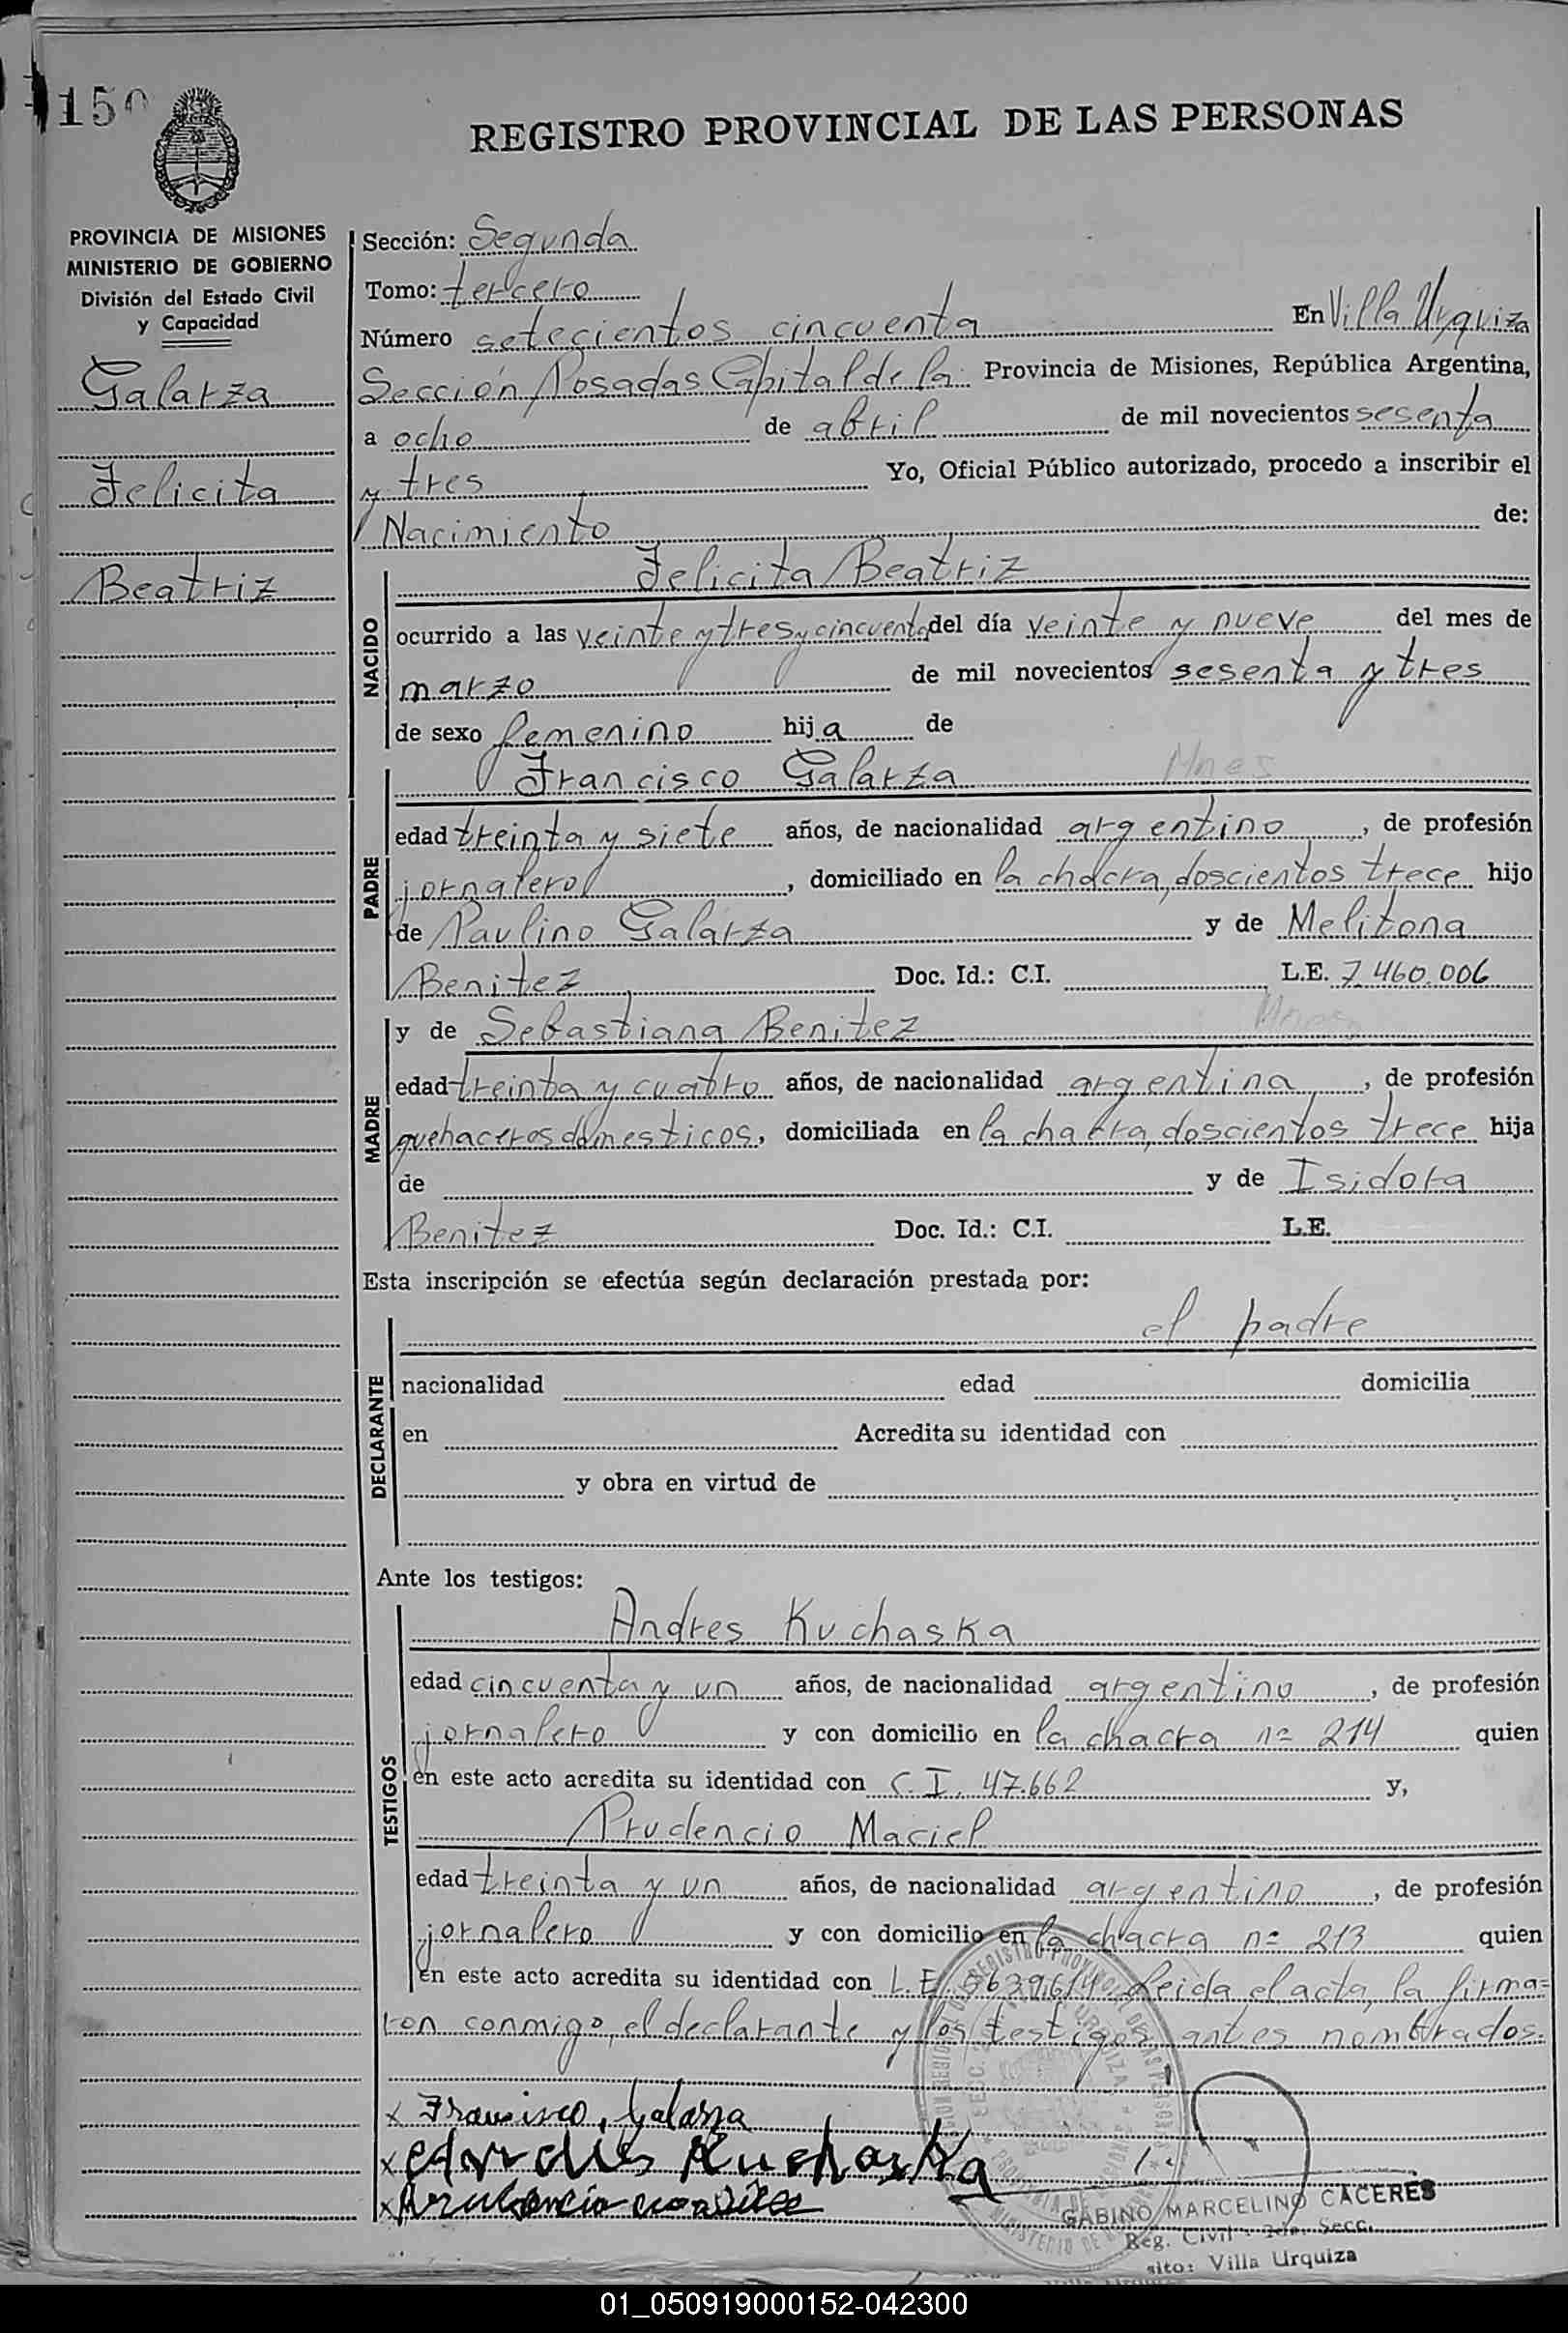 150
REGISTRO PROVINCIAL DE LAS PERSONAS
PROVINCIA DE MISIONES
MINISTERIO DE GOBIERNO
División del Estado Civil
y Capacidad
Galarza
Felicita
Beatriz
Sección: Segunda
Tomo: tercero
Número setecientos cincuenta En Villa Urquiza
Sección Posadas Capital de la Provincia de Misiones, República Argentina,
a ocho de abril de mil novecientos sesenta
y tres Yo, Oficial Público autorizado, procedo a inscribir el
Nacimiento de:
NACIDO
Felicita Beatriz
ocurrido a las veinte y tres y cincuenta del día veinte y nueve del mes de
marzo de mil novecientos sesenta y tres
de sexo femenino hija de
PADRE
Francisco Galarza Mnes
edad treinta y siete años, de nacionalidad argentino, de profesión
jornalero, domiciliado en la chacra, doscientos trece hijo
de Paulino Galarza y de Melitona
Benitez Doc. Id.: C.I. L.E. 7.460.006
MADRE
y de Sebastiana Benitez
edad treinta y cuatro años, de nacionalidad argentina, de profesión
quehaceros domesticos, domiciliada en la chacra, doscientos trece hija
de y de Isidora
Benitez Doc. Id.: C.I. L.E.
Esta inscripción se efectúa según declaración prestada por:
DECLARANTE
el padre
nacionalidad edad domicilia
en Acredita su identidad con
y obra en virtud de
Ante los testigos:
TESTIGOS
Andres Kuchaska
edad cincuenta y un años, de nacionalidad argentino, de profesión
jornalero y con domicilio en la chacra nº 214 quien
en este acto acredita su identidad con C.I. 47.662 y,
Prudencio Maciel
edad treinta y un años, de nacionalidad argentino, de profesión
jornalero y con domicilio en la chacra nº 213 quien
en este acto acredita su identidad con L.E. Leida el acta, la firma=
ron conmigo, el declarante y los testigos antes nombrados.
x Francisco, Galarza
x Kucharska
x
GABINO MARCELINO CACERES
Reg. Civil 2da. Secc.
sito: Villa Urquiza
01_050919000152-042300